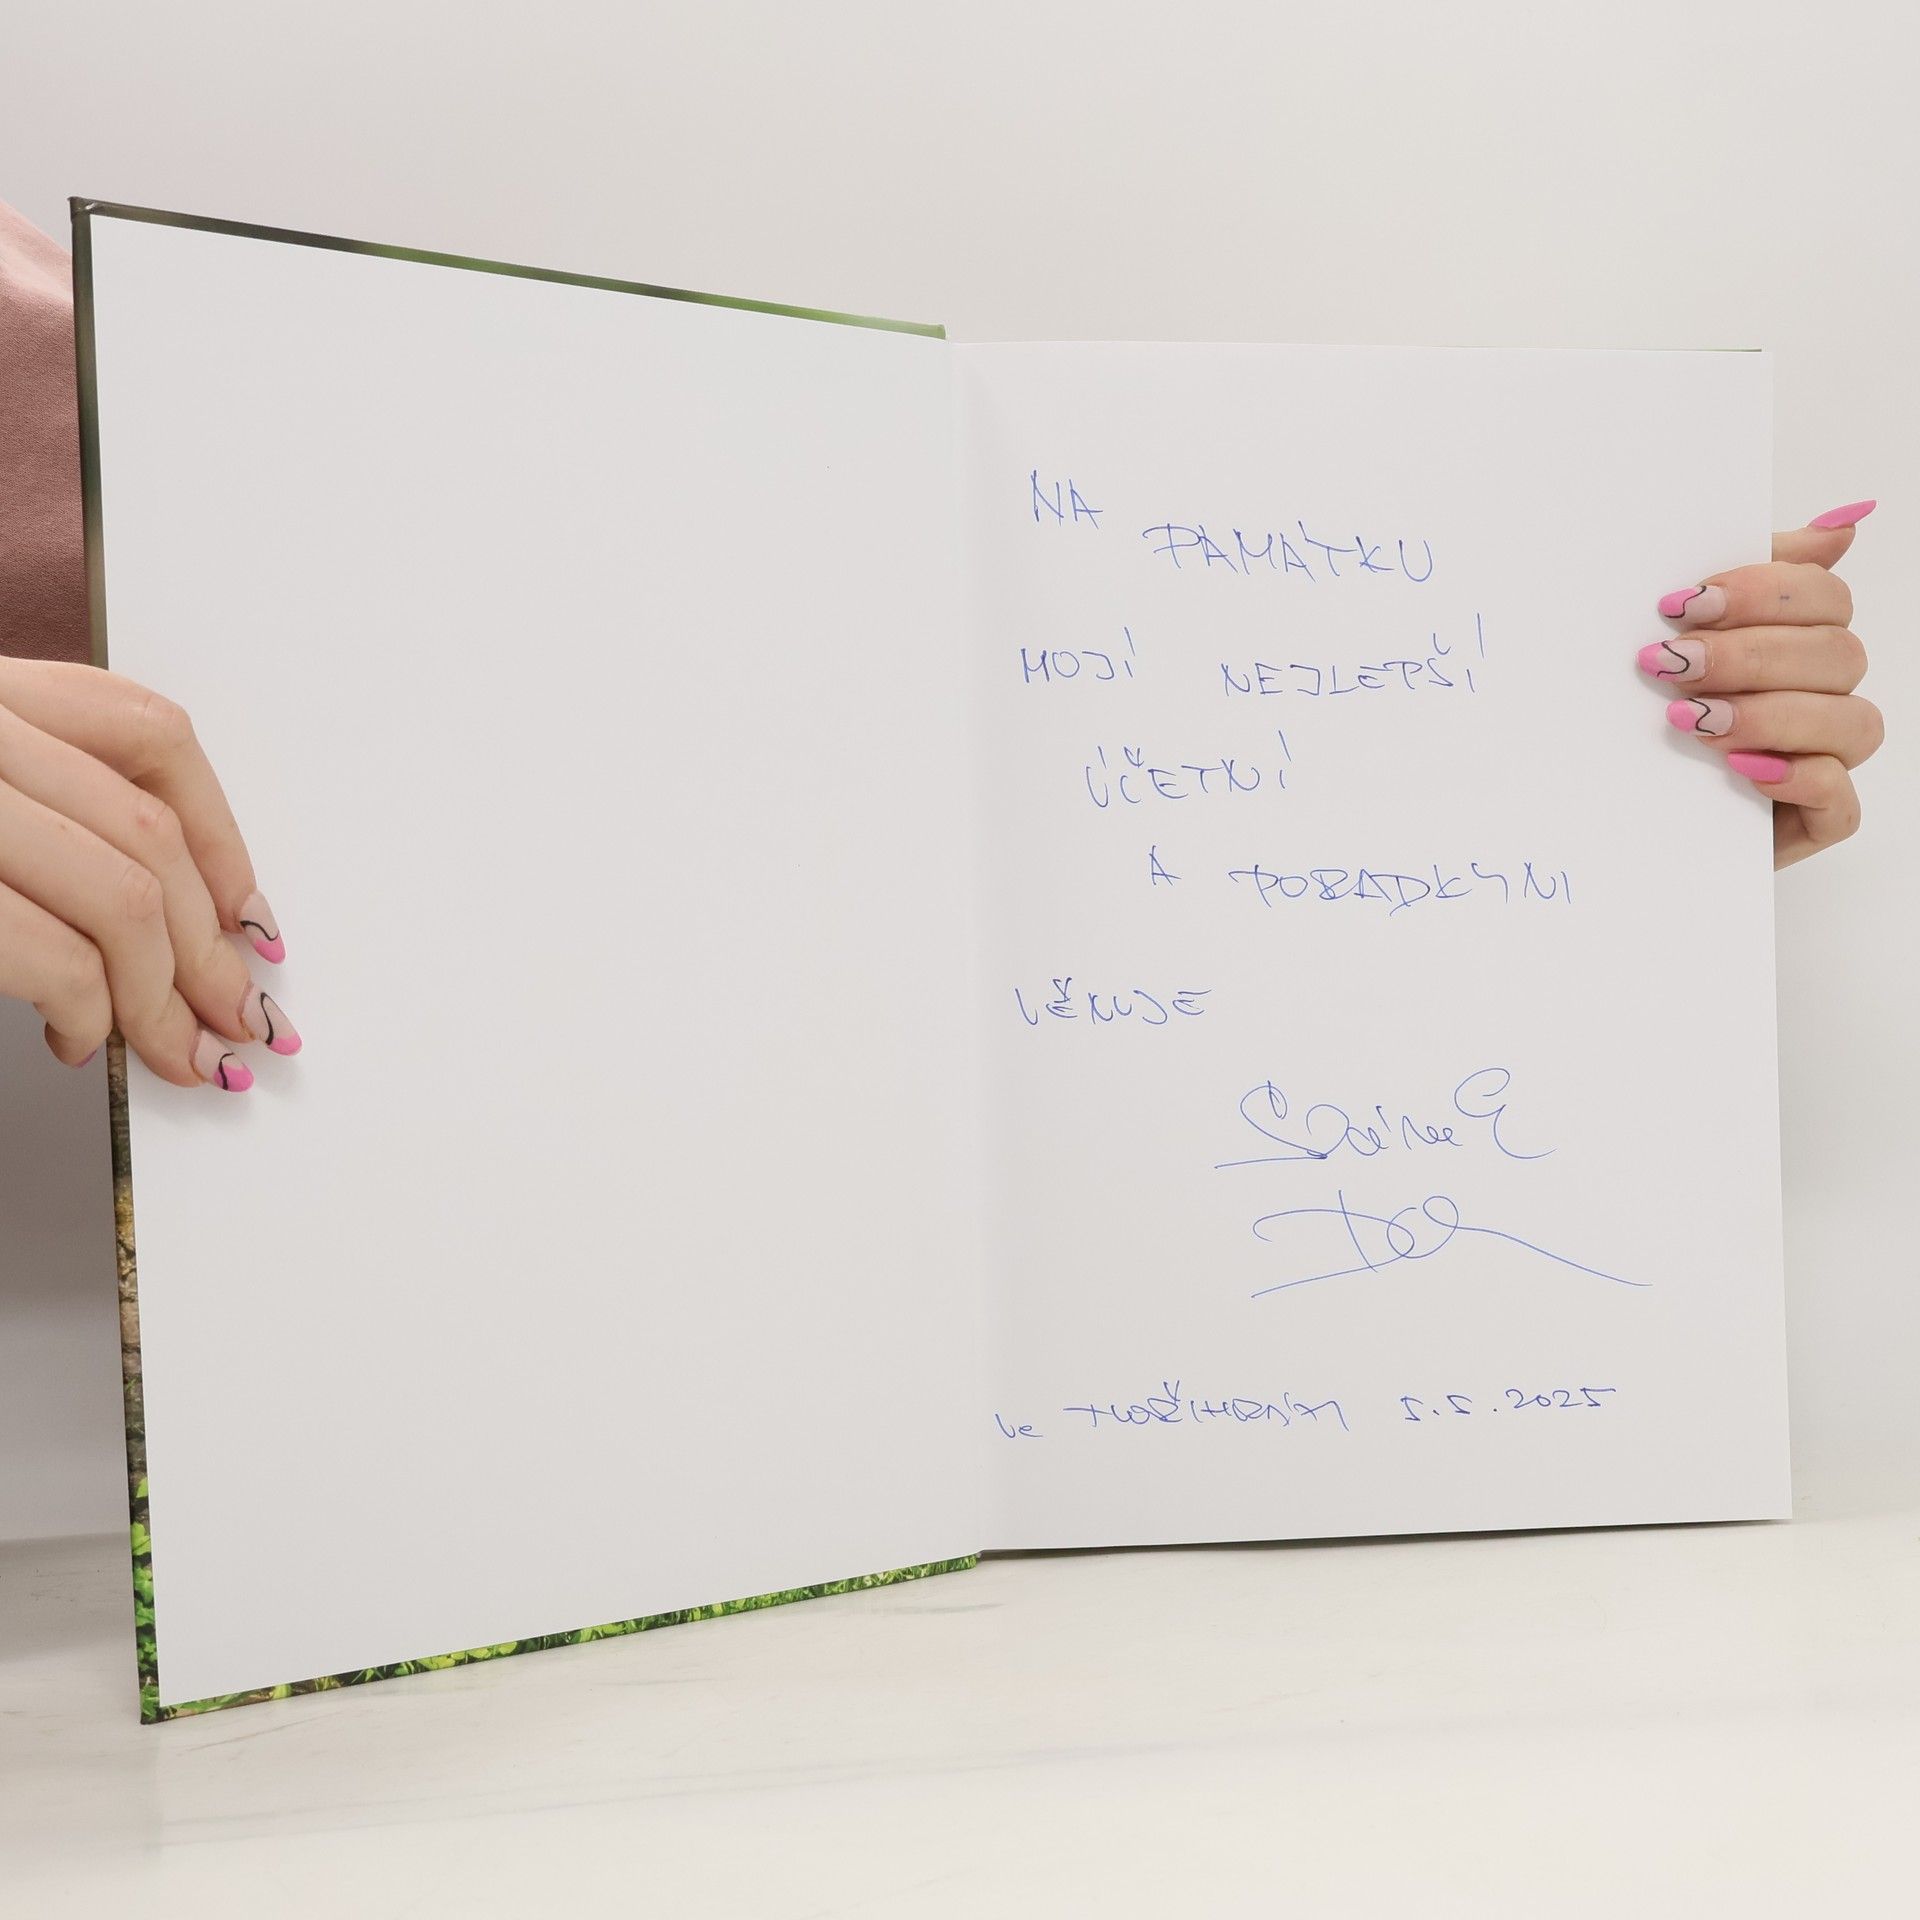 NA
PAMÁTKU
MOJÍ NEJLEPŠÍ
ÚČETNÍ
A PORADKYNI
VĚNUJE
Ve 5.5.2025